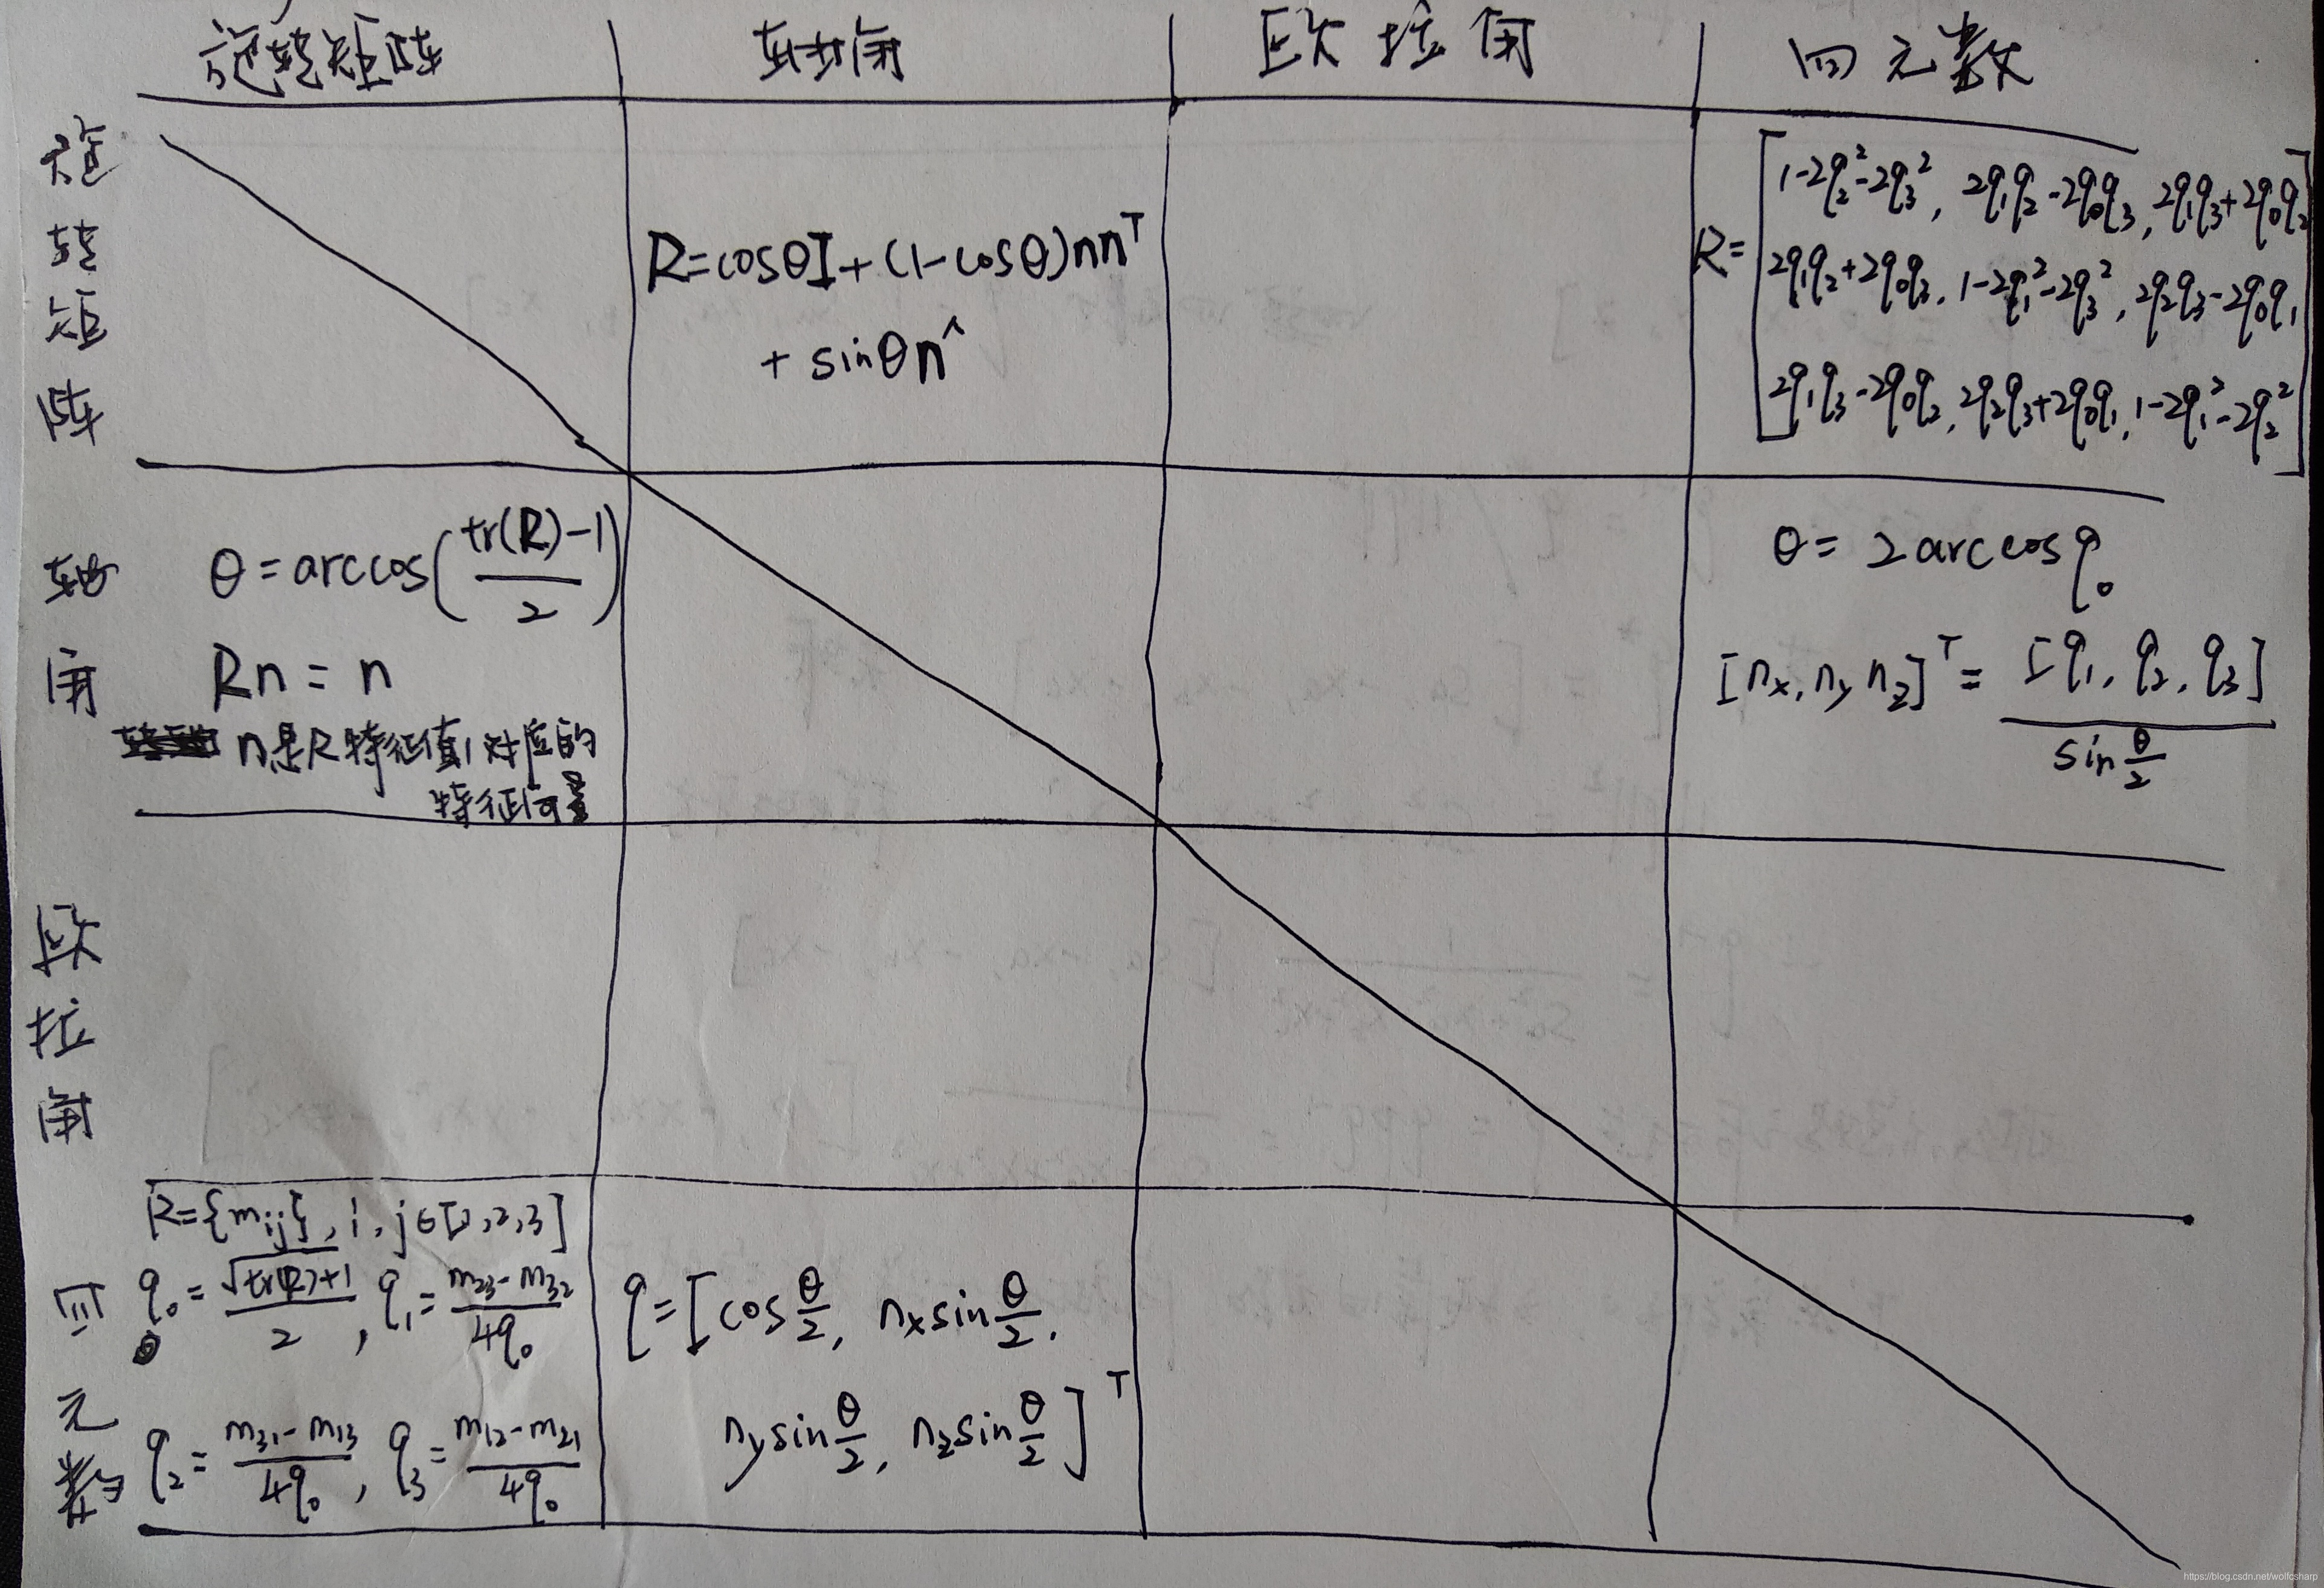 旋转矩阵 轴角 欧拉角 四元数
旋转矩阵
R=cosθI+(1-cosθ)nnᵀ
+ sinθn^
R=[1-2q₂²-2q₃², 2q₁q₂-2q₀q₃, 2q₁q₃+2q₀q₂
2q₁q₂+2q₀q₃, 1-2q₁²-2q₃², 2q₂q₃-2q₀q₁
2q₁q₃-2q₀q₂, 2q₂q₃+2q₀q₁, 1-2q₁²-2q₂²]
轴角
θ=arccos((tr(R)-1)/2)
Rn=n
n是R特征值1对应的
特征向量
θ= 2arccosq₀
[nx,ny nz]ᵀ= [q₁, q₂, q₃]/sin(θ/2)
欧拉角
四元数
R={mij}, i, j∈[1,2,3]
q₀=√(tr(R)+1)/2, q₁=(m₂₃-m₃₂)/4q₀
q₂=(m₃₁-m₁₃)/4q₀, q₃=(m₁₂-m₂₁)/4q₀
q=[cos θ/2, nxsin θ/2,
nysin θ/2, nzsin θ/2]ᵀ
https://blog.csdn.net/wolfcsharp